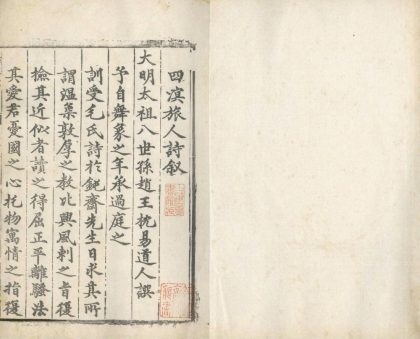 四溟旅人詩敘
大明太祖八世孫趙王枕易道人譔
予自舞象之年承過庭之
訓受毛氏詩於鈍齋先生日求其所
謂溫柔敦厚之教比興風刺之旨復
檢其近似者讀之得屈正平離騷法
其愛君憂國之心托物寓情之指復